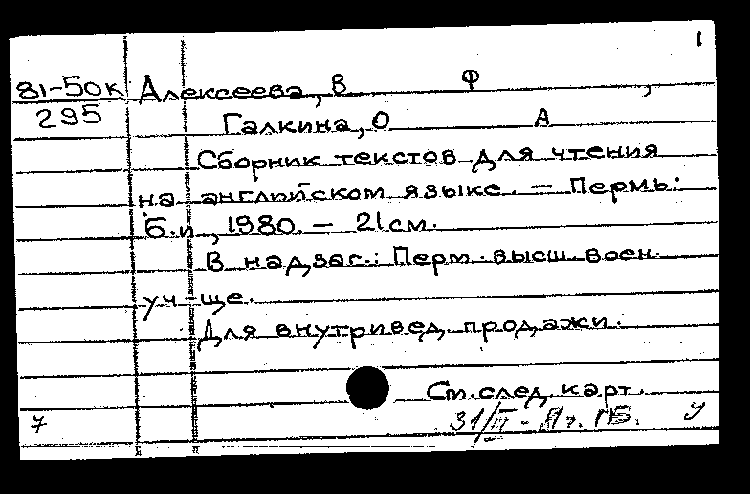 1
81-50к Алексеева, В Ф ,
295 Галкина, О А
Сборник текстов для чтения
на английском языке. — Пермь:
Б.и., 1980. — 21 см.
В надзаг.: Перм. высш. воен.
уч-ще.
Для внутривед. продажи.
См. след. карт.
7 31/ПБ. У